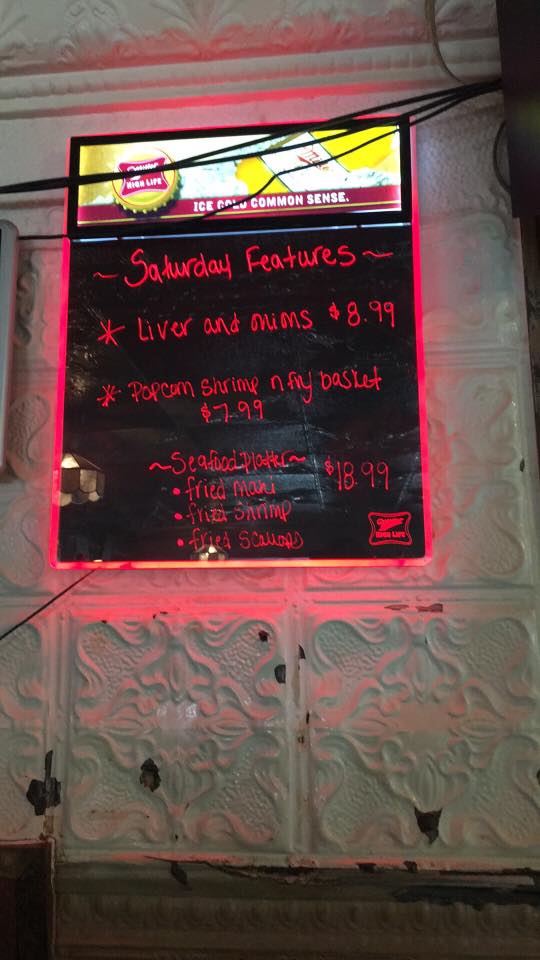 Miller
HIGH LIFE
ICE COLD COMMON SENSE.
~ Saturday Features ~
* Liver and onions $8.99
* Popcorn Shrimp n fry basket
$7.99
~Seafood Platter~ $18.99
• fried mahi
• fried shrimp
• fried scallops
Miller
HIGH LIFE